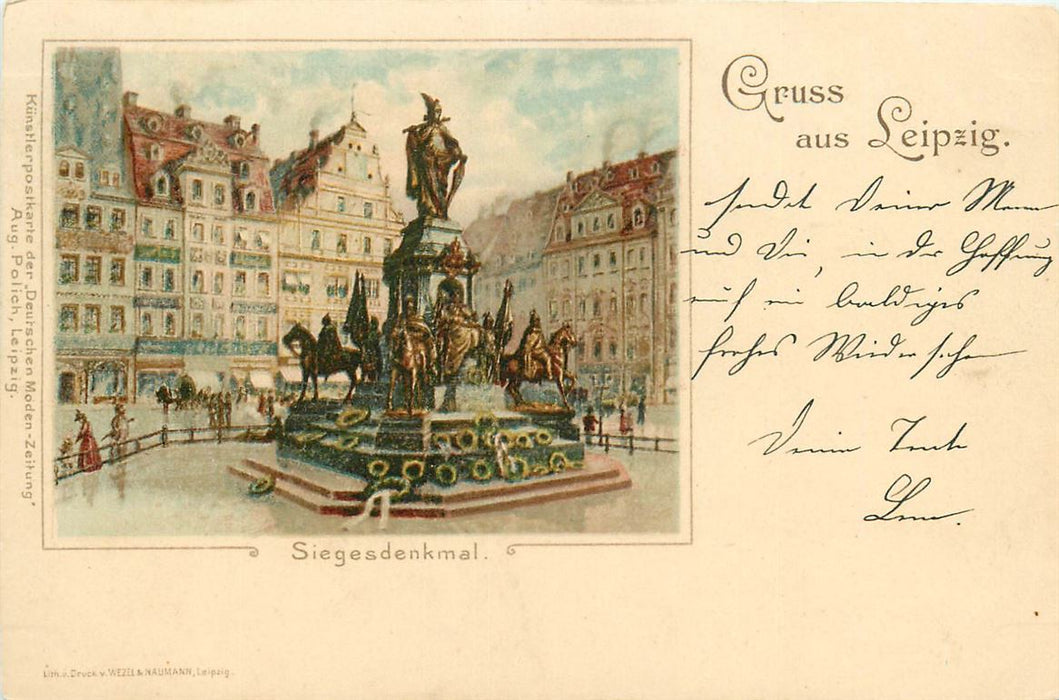 Gruss
aus Leipzig.
sendet Deiner Mama
und Dir, in der Hoffnung
auf ein baldiges
frohes Wiedersehen
Deine Tante
Siegesdenkmal.
Künstlerpostkarte der „Deutschen Moden-Zeitung"
Aug. Polich, Leipzig.
Lith. u. Druck v. WEZEL & NAUMANN, Leipzig.